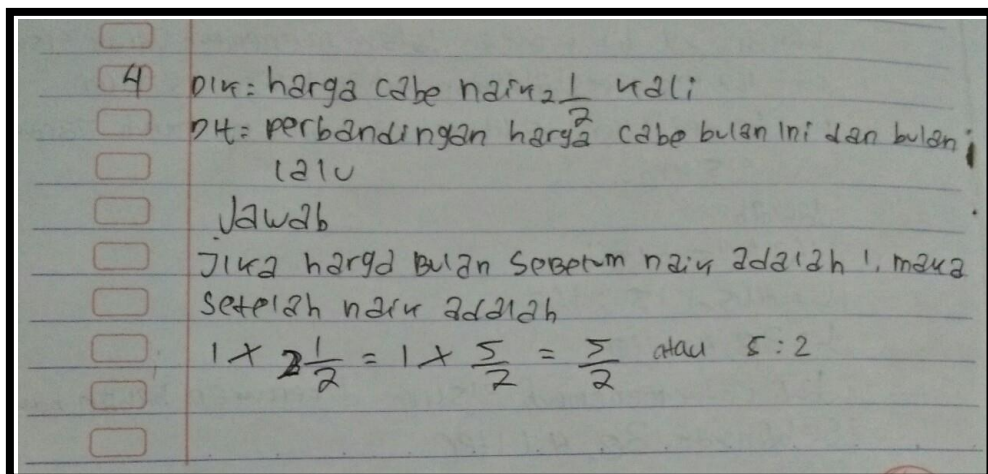 4 Dik = harga cabe naik 2 1/2 kali
Dit = perbandingan harga cabe bulan ini dan bulan
lalu
Jawab
Jika harga Bulan Sebelum naik adalah 1, maka
Setelah naik adalah
1 × 2 1/2 = 1 × 5/2 = 5/2 atau 5 : 2